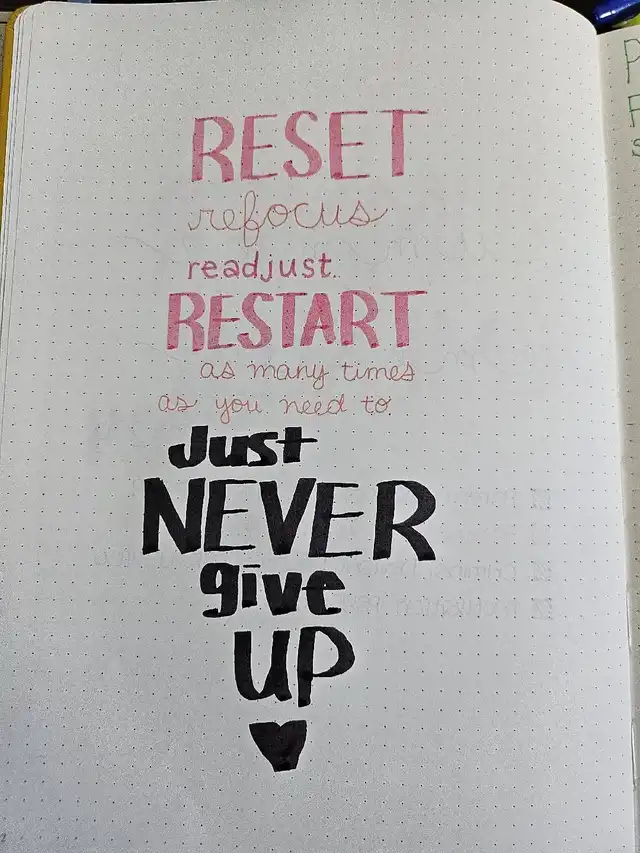 RESET
refocus
readjust.
RESTART
as many times
as you need to
Just
NEVER
give
UP